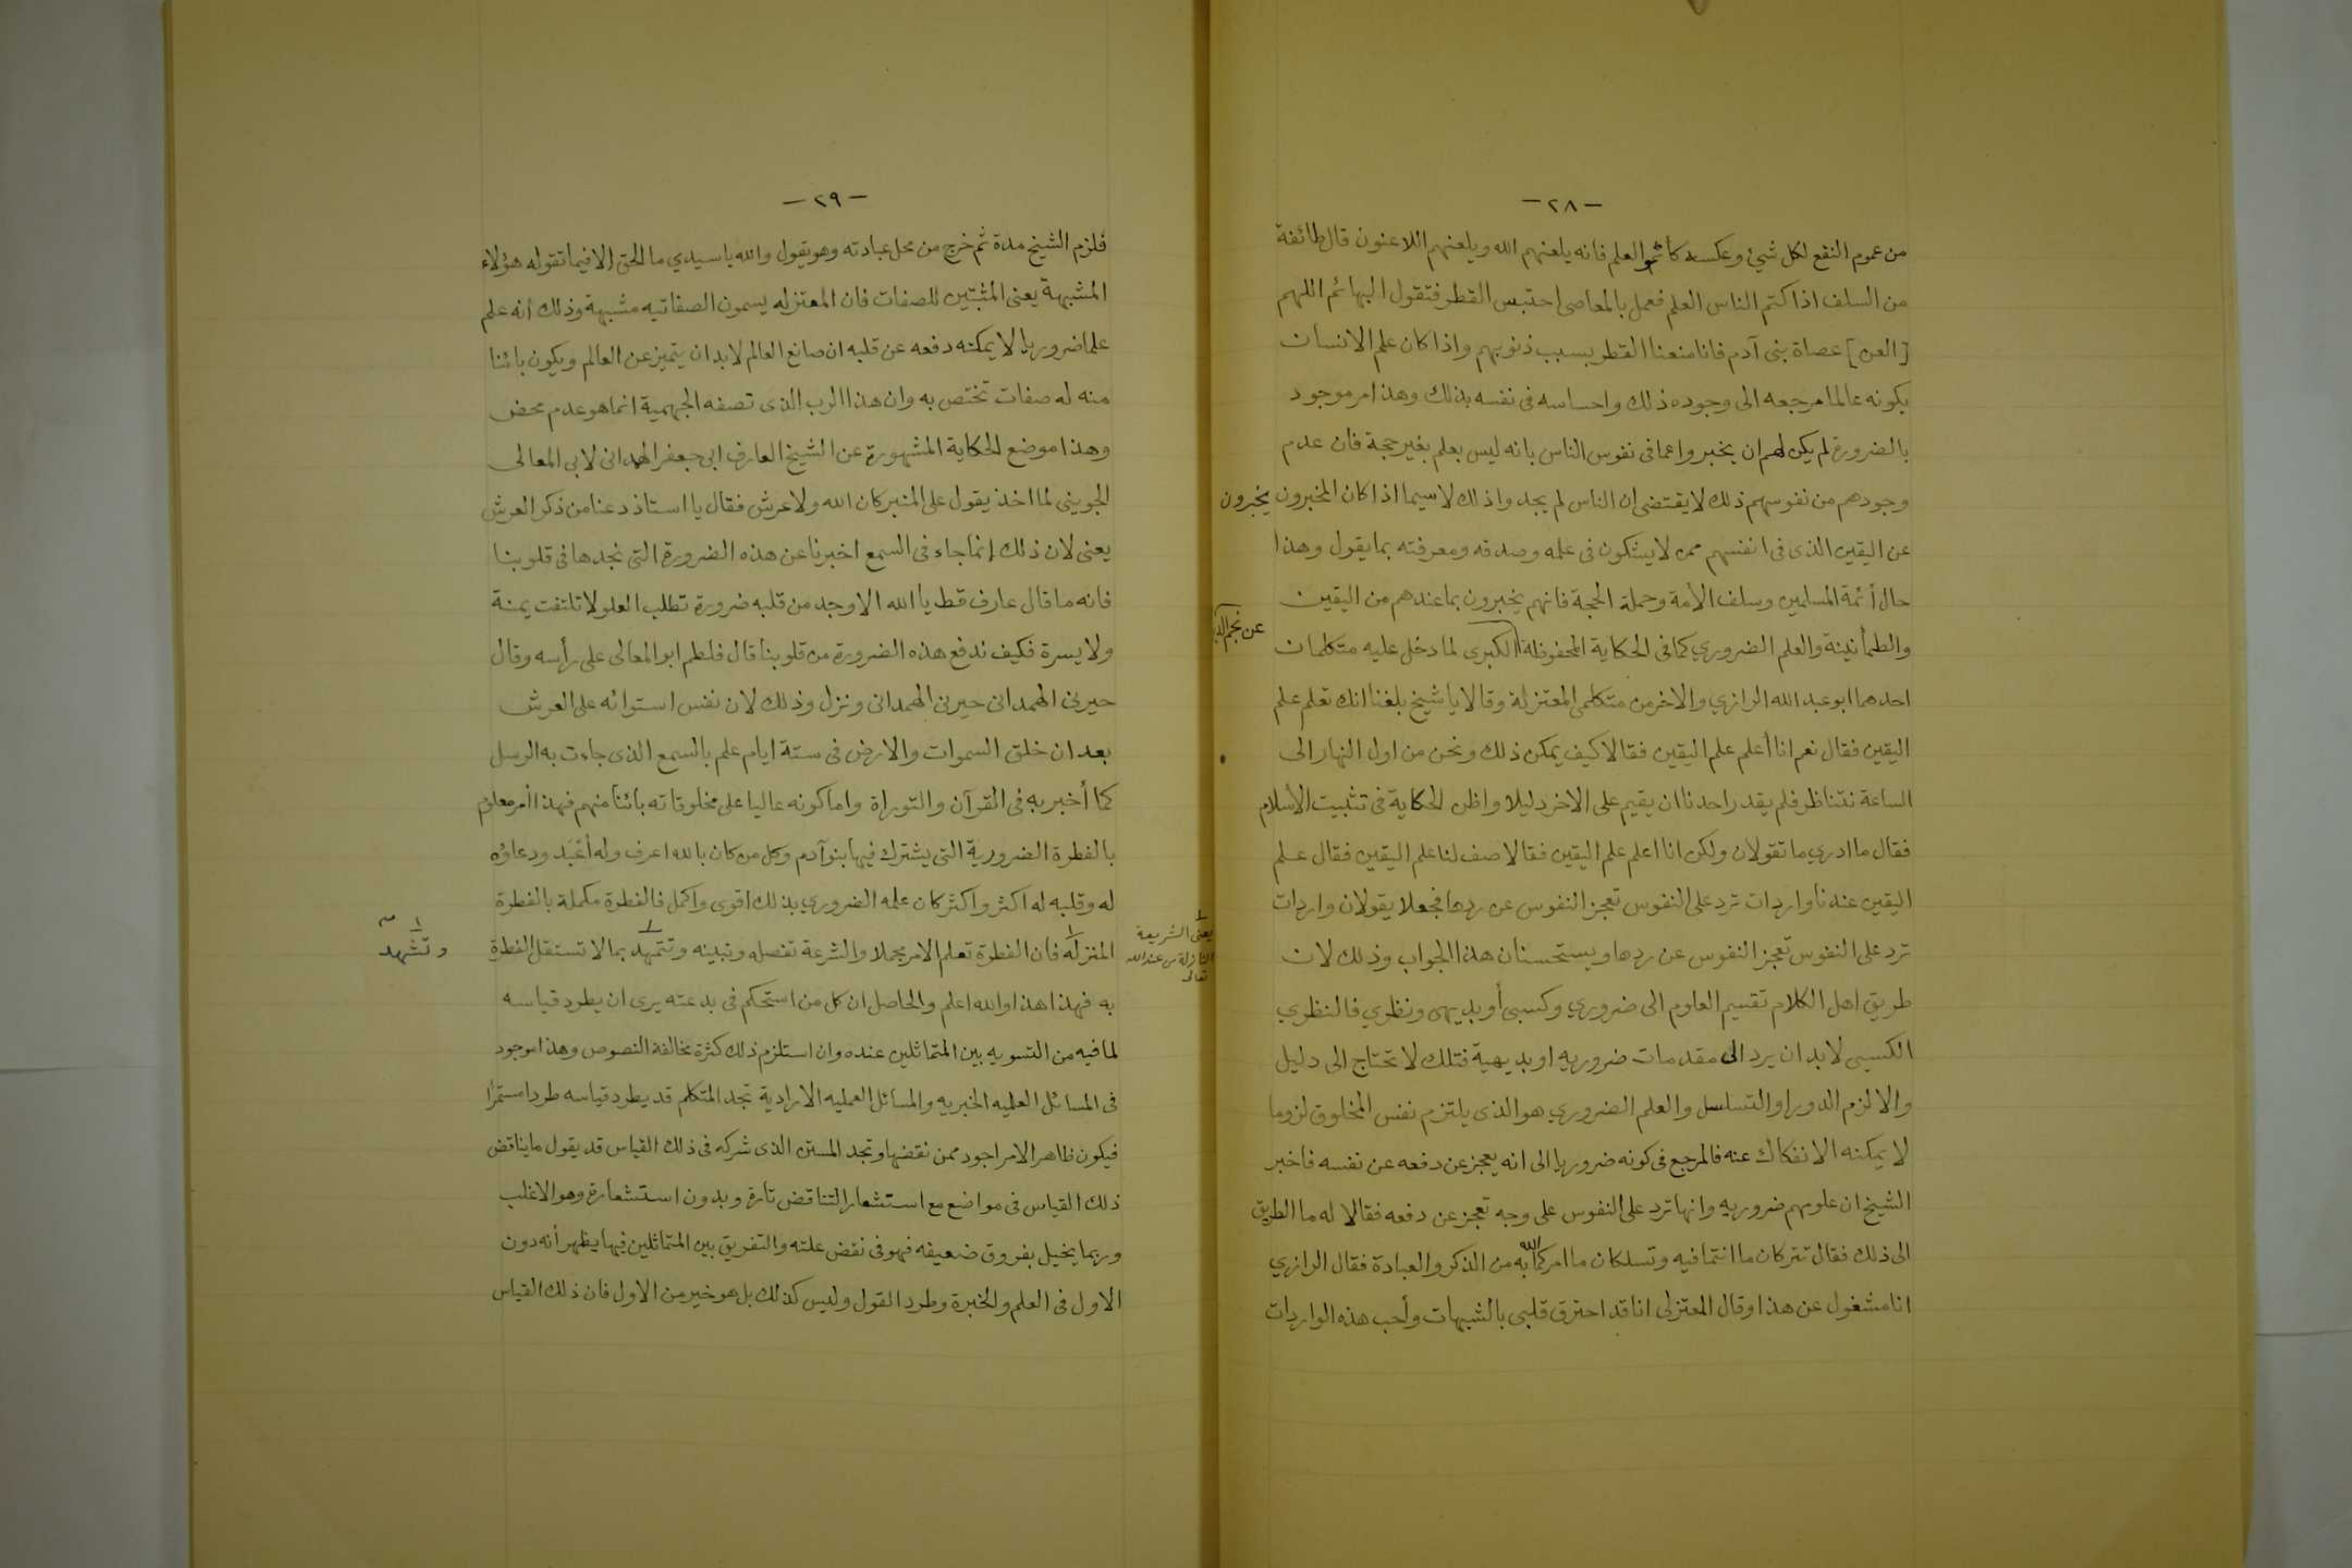 — ٢٨ —
من عموم النفع لكل شيئ وعكسه كاتموا العلم فانه يلعنهم الله ويلعنهم اللاعنون قال طائفة
من السلف اذا كتم الناس العلم فعمل بالمعاصى احتبس القطر فتقول البهائم اللهم
[العن] عصاة بنى آدم فانا منعنا القطر بسبب ذنوبهم واذا كان علم الانسان
بكونه عالما مرجعه الى وجوده ذلك واحساسه فى نفسه بذلك وهذا امر موجود
بالضرورة لم يكن لهم ان يخبروا عما فى نفوس الناس بانه ليس بعلم بغير حجة فان عدم
وجودهم من نفوسهم ذلك لا يقتضى ان الناس لم يجدوا ذلك لا سيما اذا كان المخبرون يخبرون
عن اليقين الذى فى انفسهم ممن لا يشكون فى علمه وصدقه ومعرفته بما يقول وهذا
حال أئمة المسلمين وسلف الأمة وحملة الحجة فانهم يخبرون بما عندهم من اليقين
والطمأنينة والعلم الضروري كما فى الحكاية المحفوظة الكبرى لما دخل عليه متكلمان
عن نجم الدين
احدهما ابو عبد الله الرازي والاخر من متكلمى المعتزلة وقالا يا شيخ بلغنا انك تعلم علم
اليقين فقال نعم انا أعلم علم اليقين فقالا كيف يمكن ذلك ونحن من اول النهار الى
الساعة نتناظر فلم يقدر احدنا ان يقيم على الاخر دليلا واظن الحكاية فى تثبيت الأسلام
فقال ما ادري ما تقولان ولكن انا اعلم علم اليقين فقالا صف لنا علم اليقين فقال علم
اليقين عندنا واردات ترد على النفوس تعجز النفوس عن ردها فجعلا يقولان واردات
ترد على النفوس تعجز النفوس عن ردها ويستحسنان هذا الجواب وذلك لان
طريق اهل الكلام تقسيم العلوم الى ضروري وكسبى أو بديهى ونظري فالنظري
الكسبى لا بد ان يرد الى مقدمات ضروريه او بديهية فتلك لا تحتاج الى دليل
والا لزم الدور او التسلسل والعلم الضروري هو الذى يلتزم نفس المخلوق لزوما
لا يمكنه الانفكاك عنه فالمرجع فى كونه ضروريا الى انه يعجز عن دفعه عن نفسه فاخبر
الشيخ ان علومهم ضروريه وانها ترد على النفوس على وجه تعجز عن دفعه فقالا له ما الطريق
الى ذلك فقال تتركان ما انتما فيه وتسلكان ما امركما الله به من الذكر والعبادة فقال الرازي
انا مشغول عن هذا وقال المعتزلى انا قد احترق قلبى بالشبهات وأحب هذه الواردات
— ٢٩ —
فلزم الشيخ مدة ثم خرج من محل عبادته وهو يقول والله يا سيدي ما الحق الا فيما تقوله هؤلاء
المشبهة يعنى المثبتين للصفات فان المعتزله يسمون الصفاتيه مشبهة وذلك أنه علم
علما ضروريا لا يمكنه دفعه عن قلبه ان صانع العالم لابد ان يتميز عن العالم ويكون بائنا
منه له صفات تختص به وان هذا الرب الذى تصفه الجهمية انما هو عدم محض
وهذا موضع الحكاية المشهورة عن الشيخ العارف ابى جعفر الهمدانى لابى المعالى
الجوينى لما اخذ يقول على المنبر كان الله ولا عرش فقال يا استاذ دعنا من ذكر العرش
يعنى لان ذلك إنما جاء فى السمع اخبرنا عن هذه الضرورة التى نجدها فى قلوبنا
فانه ما قال عارف قط يا الله الا وجد من قلبه ضرورة تطلب العلو لا تلتفت يمنة
ولا يسرة فكيف ندفع هذه الضرورة من قلوبنا قال فلطم ابو المعالى على رأسه وقال
حيرنى الهمدانى حيرنى الهمدانى ونزل وذلك لان نفس استوائه على العرش
بعد ان خلق السموات والارض فى ستة ايام علم بالسمع الذى جاءت به الرسل
كما أخبر به فى القرآن والتوراة واما كونه عاليا على مخلوقاته بائنا منهم فهذا أمر معلوم
بالفطرة الضرورية التى يشترك فيها بنو آدم وكل من كان بالله اعرف وله أعبد ودعاؤه
له وقلبه له اكثر واكثر كان علمه الضروري بذلك اقوى واكمل فالفطرة مكملة بالفطرة
المنزله فان الفطرة تعلم الامر مجملا والشرعة تفصله وتبينه وتتمهد بما لا تستقل الفطرة
يعنى الشريعة
النازلة من عند الله
تعالى
وتشهد
به فهذا هذا والله اعلم والحاصل ان كل من استحكم فى بدعته يرى ان يطرد قياسه
لما فيه من التسويه بين المتماثلين عنده وان استلزم ذلك كثرة مخالفة النصوص وهذا موجود
فى المسائل العلميه الخبريه والمسائل العمليه الارادية تجد المتكلم قد يطرد قياسه طردا مستمرا
فيكون ظاهر الامر اجود ممن نقضها وتجد المستن الذى شركه فى ذلك القياس قد يقول ما يناقض
ذلك القياس فى مواضع مع استشعار التناقض تارة وبدون استشعاره وهو الاغلب
وربما يخيل بفروق ضعيفه فهو فى نقض علته والتفريق بين المتماثلين فيها يظهر أنه دون
الاول فى العلم والخبرة وطرد القول وليس كذلك بل هو خير من الاول فان ذلك القياس